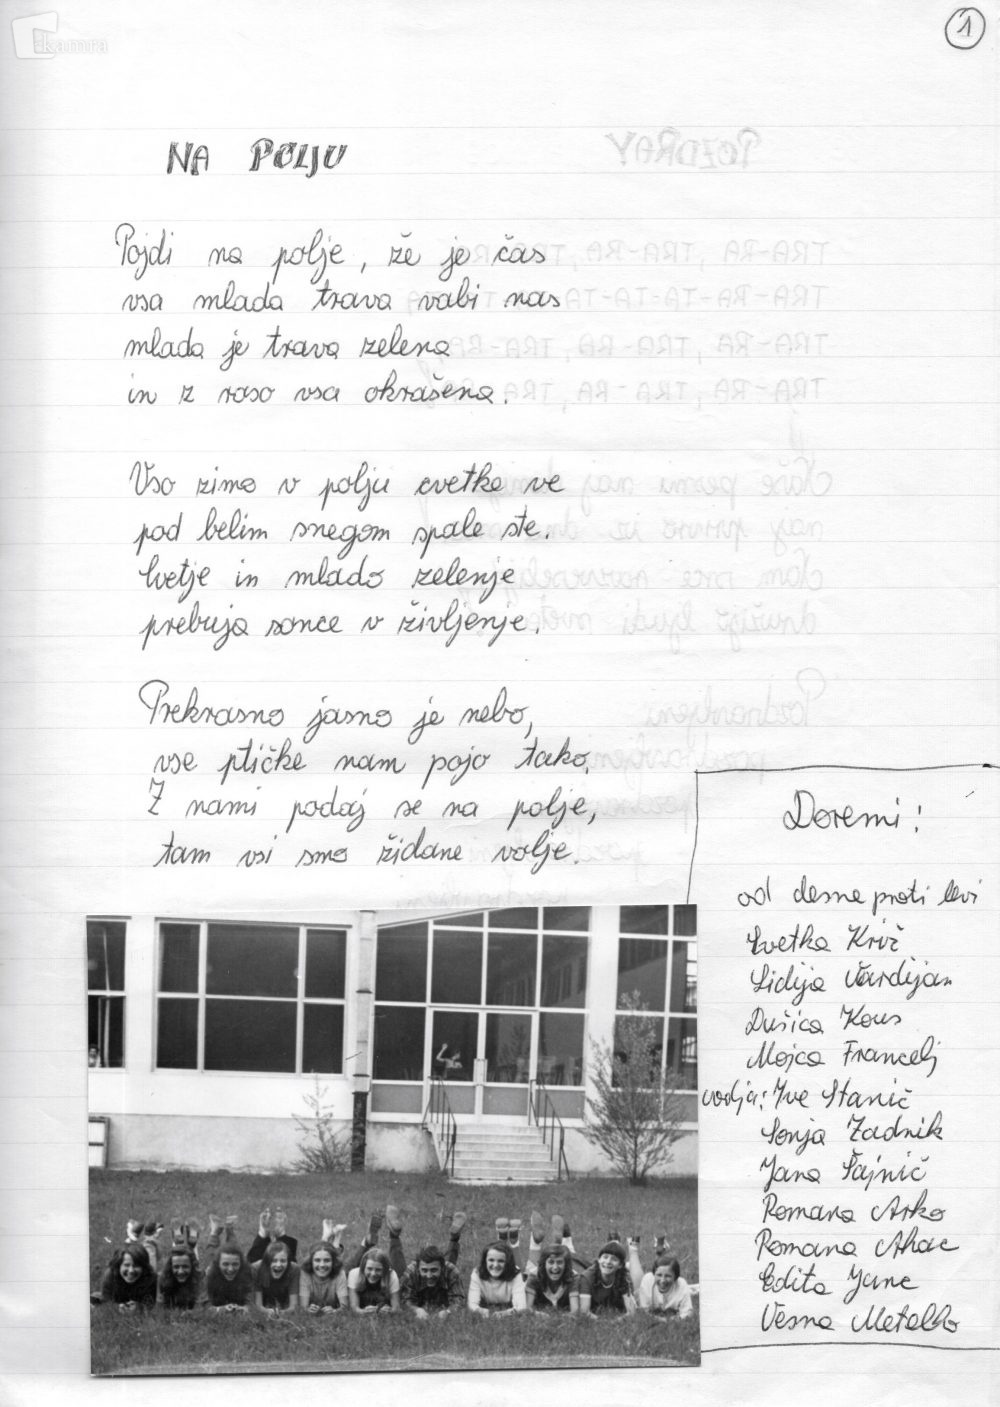 ekamra
1
NA POLJU
Pojdi na polje, že je čas
vsa mlada trava vabi nas
mlada je trava zelena
in z roso vsa okrašena.
Vso zimo v polju cvetke ve
pod belim snegom spale ste.
Cvetje in mlado zelenje
prebuja sonce v življenje.
Prekrasno jasno je nebo,
vse ptičke nam pojo tako.
Z nami podaj se na polje,
tam vsi smo židane volje.
Doremi!
od desne proti levi
Cvetka Križ
Lidija Vardijan
Dušica Kous
Mojca Francelj
vodja: Ive Stanič
Sonja Zadnik
Jana Šajnič
Romana Arko
Romana Ahac
Edita Janc
Vesna Metelko